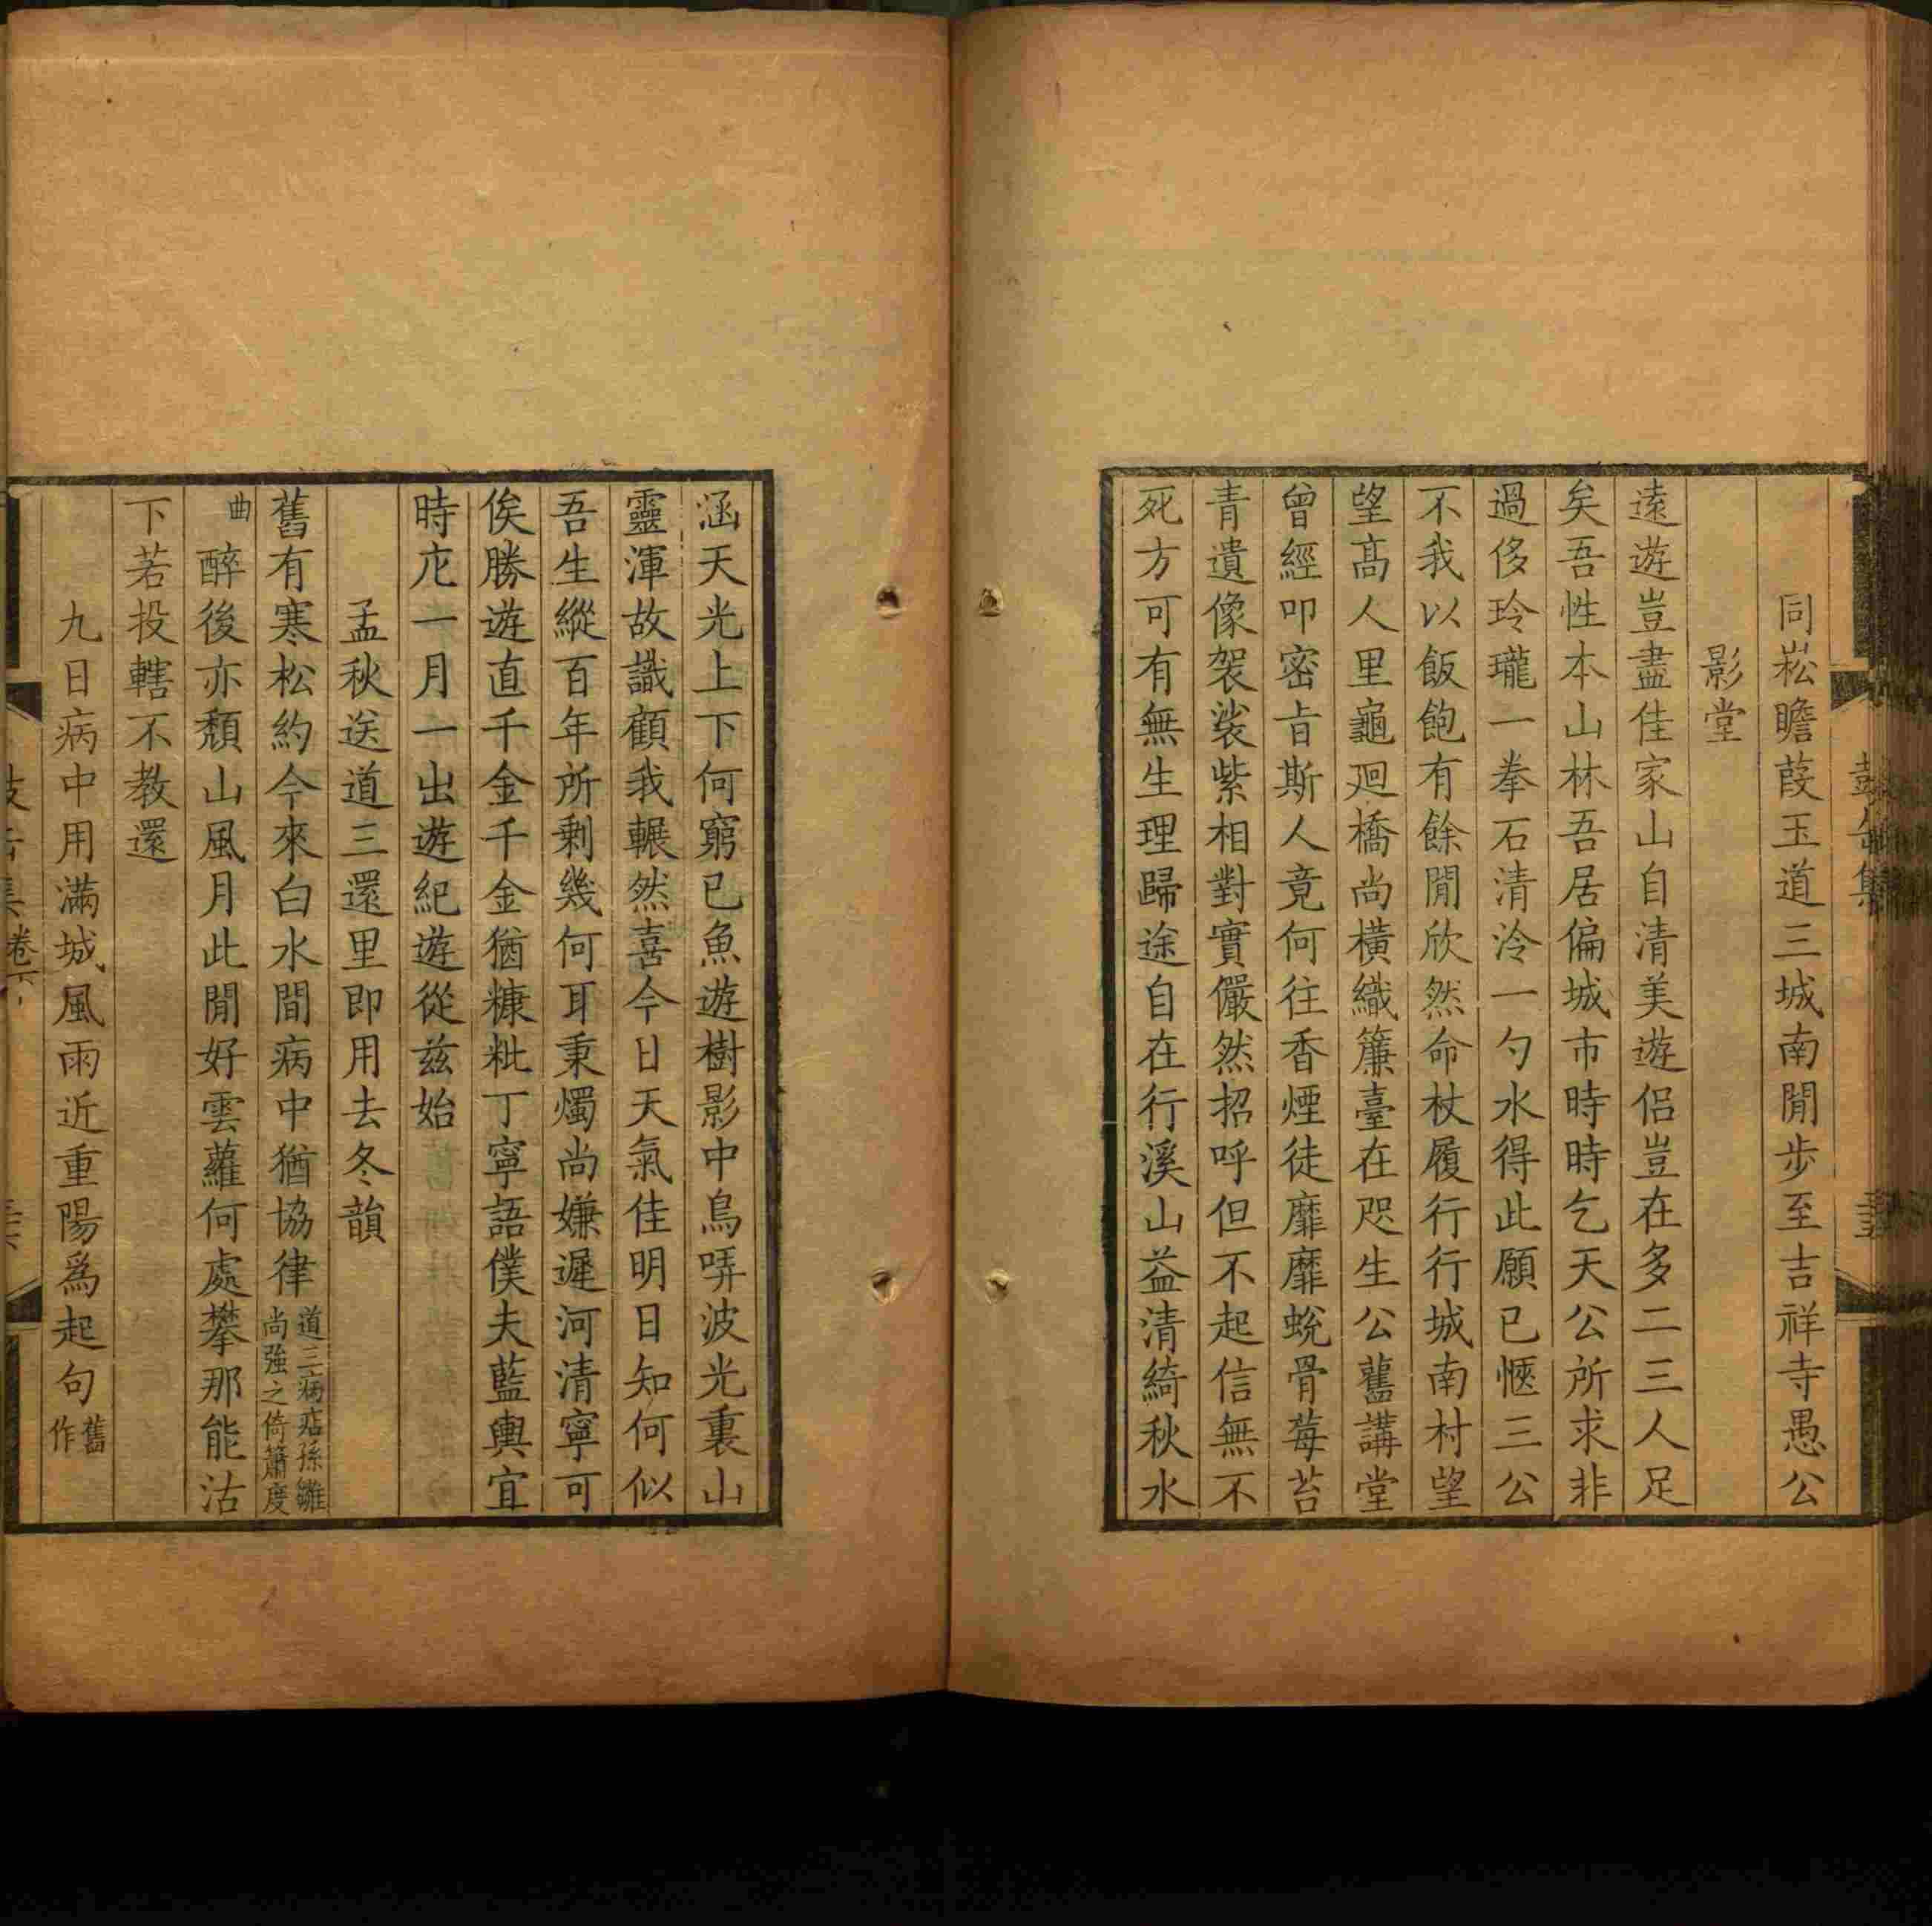 同崧瞻葭玉道三城南閒步至吉祥寺愚公
影堂
遠遊豈盡佳家山自清美遊侶豈在多二三人足
矣吾性本山林吾居偏城市時時乞天公所求非
過侈玲瓏一拳石清泠一勺水得此願已愜三公
不我以飯飽有餘閒欣然命杖履行行城南村望
望高人里龜廻橋尚橫織簾臺在咫生公舊講堂
曾經叩密㫖斯人竟何往香煙徒靡靡蛻骨莓苔
青遺像袈裟紫相對實儼然招呼但不起信無不
死方可有無生理歸途自在行溪山益清綺秋水
涵天光上下何窮已魚遊樹影中鳥哢波光裏山
靈渾故識顧我囅然喜今日天氣佳明日知何似
吾生縱百年所剩幾何耳秉燭尚嫌遲河清寧可
俟勝遊直千金千金猶糠粃丁寧語僕夫藍輿宜
時庀一月一出遊紀遊從茲始
孟秋送道三還里即用去冬韻
舊有寒松約今來白水間病中猶協律
道三病痁孫雛
尚強之倚簫度
曲
醉後亦頹山風月此閒好雲蘿何處攀那能沽
下若投轄不教還
九日病中用滿城風雨近重陽為起句
舊
作
集卷下